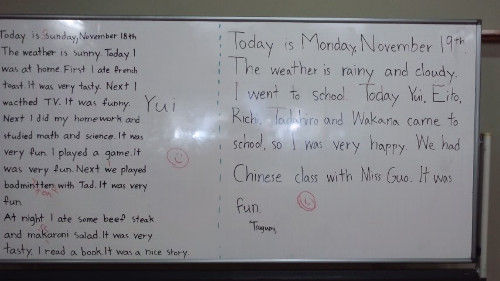 Today is Sunday, November 18th
The weather is sunny. Today I
was at home. First I ate french
toast. It was very tasty. Next I
wacthed T.V. It was funny.
Next I did my homework and
studied math and science. It was
very fun. I played a game. It
was very fun. Next we played
badmintten with Tad. It was very
fun.
At night I ate some beef steak
and makaroni salad. It was very
tasty. I read a book. It was a nice story.
Yui
Today is Monday, November 19th.
The weather is rainy and cloudy.
I went to school. Today Yui, Eito,
Richi, Tadahiro and Wakana came to
school, so I was very happy. We had
Chinese class with Miss Guo. It was
fun.